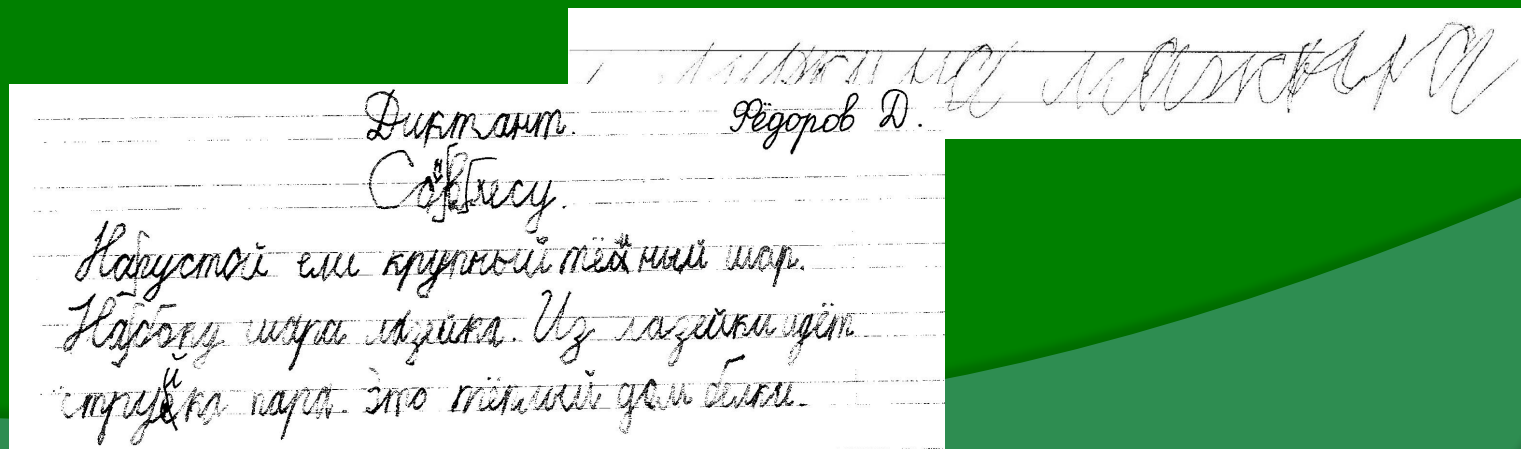 Диктант. Фёдоров Д.
лесу.
На густой ели крупный тёмный шар.
На боку шара лазейка. Из лазейки идёт
струйка пара. Это тёплый дом белки.